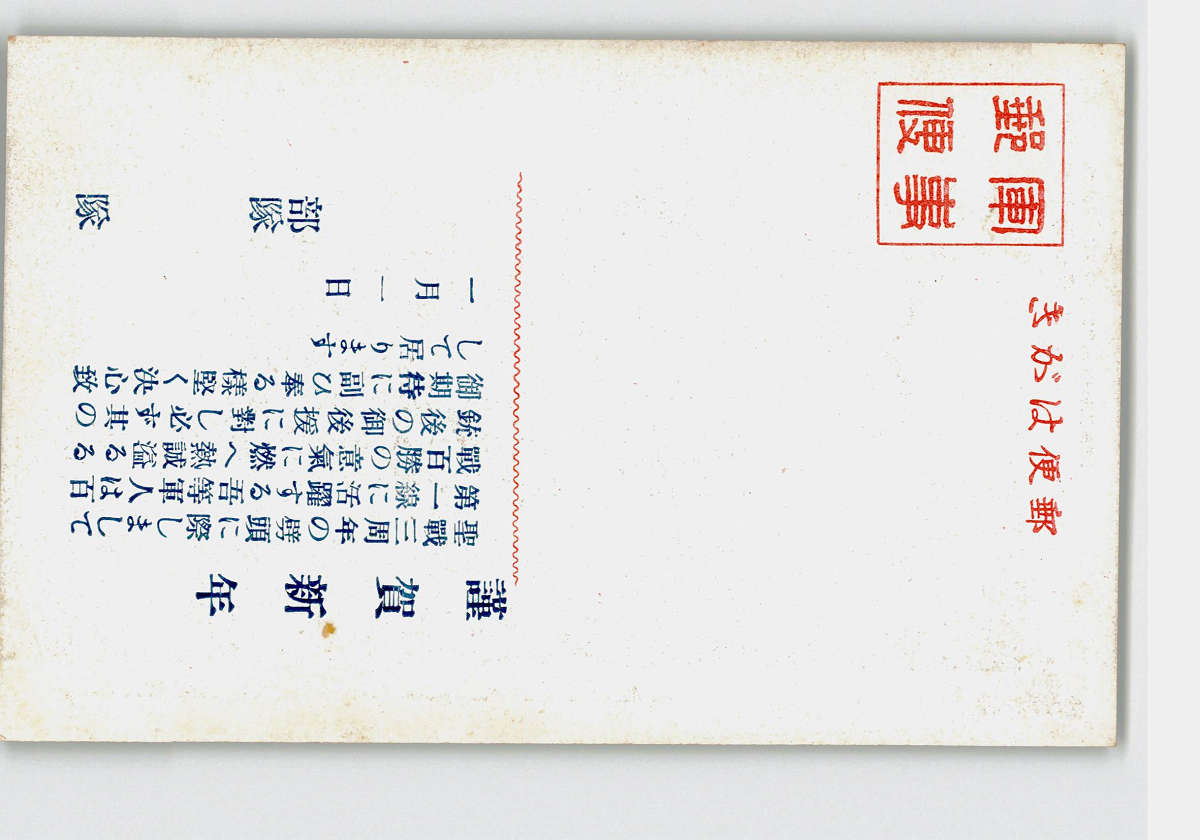 郵便はがき
軍事
郵便
謹賀新年
聖戰三周年の劈頭に際しまして
第一線に活躍する吾等軍人は百
戰百勝の意氣に燃へ熱誠溢るる
銃後の御後援に對し必ず其の
御期待に副ひ奉る樣堅く決心致
して居ります
一月一日
部隊 隊